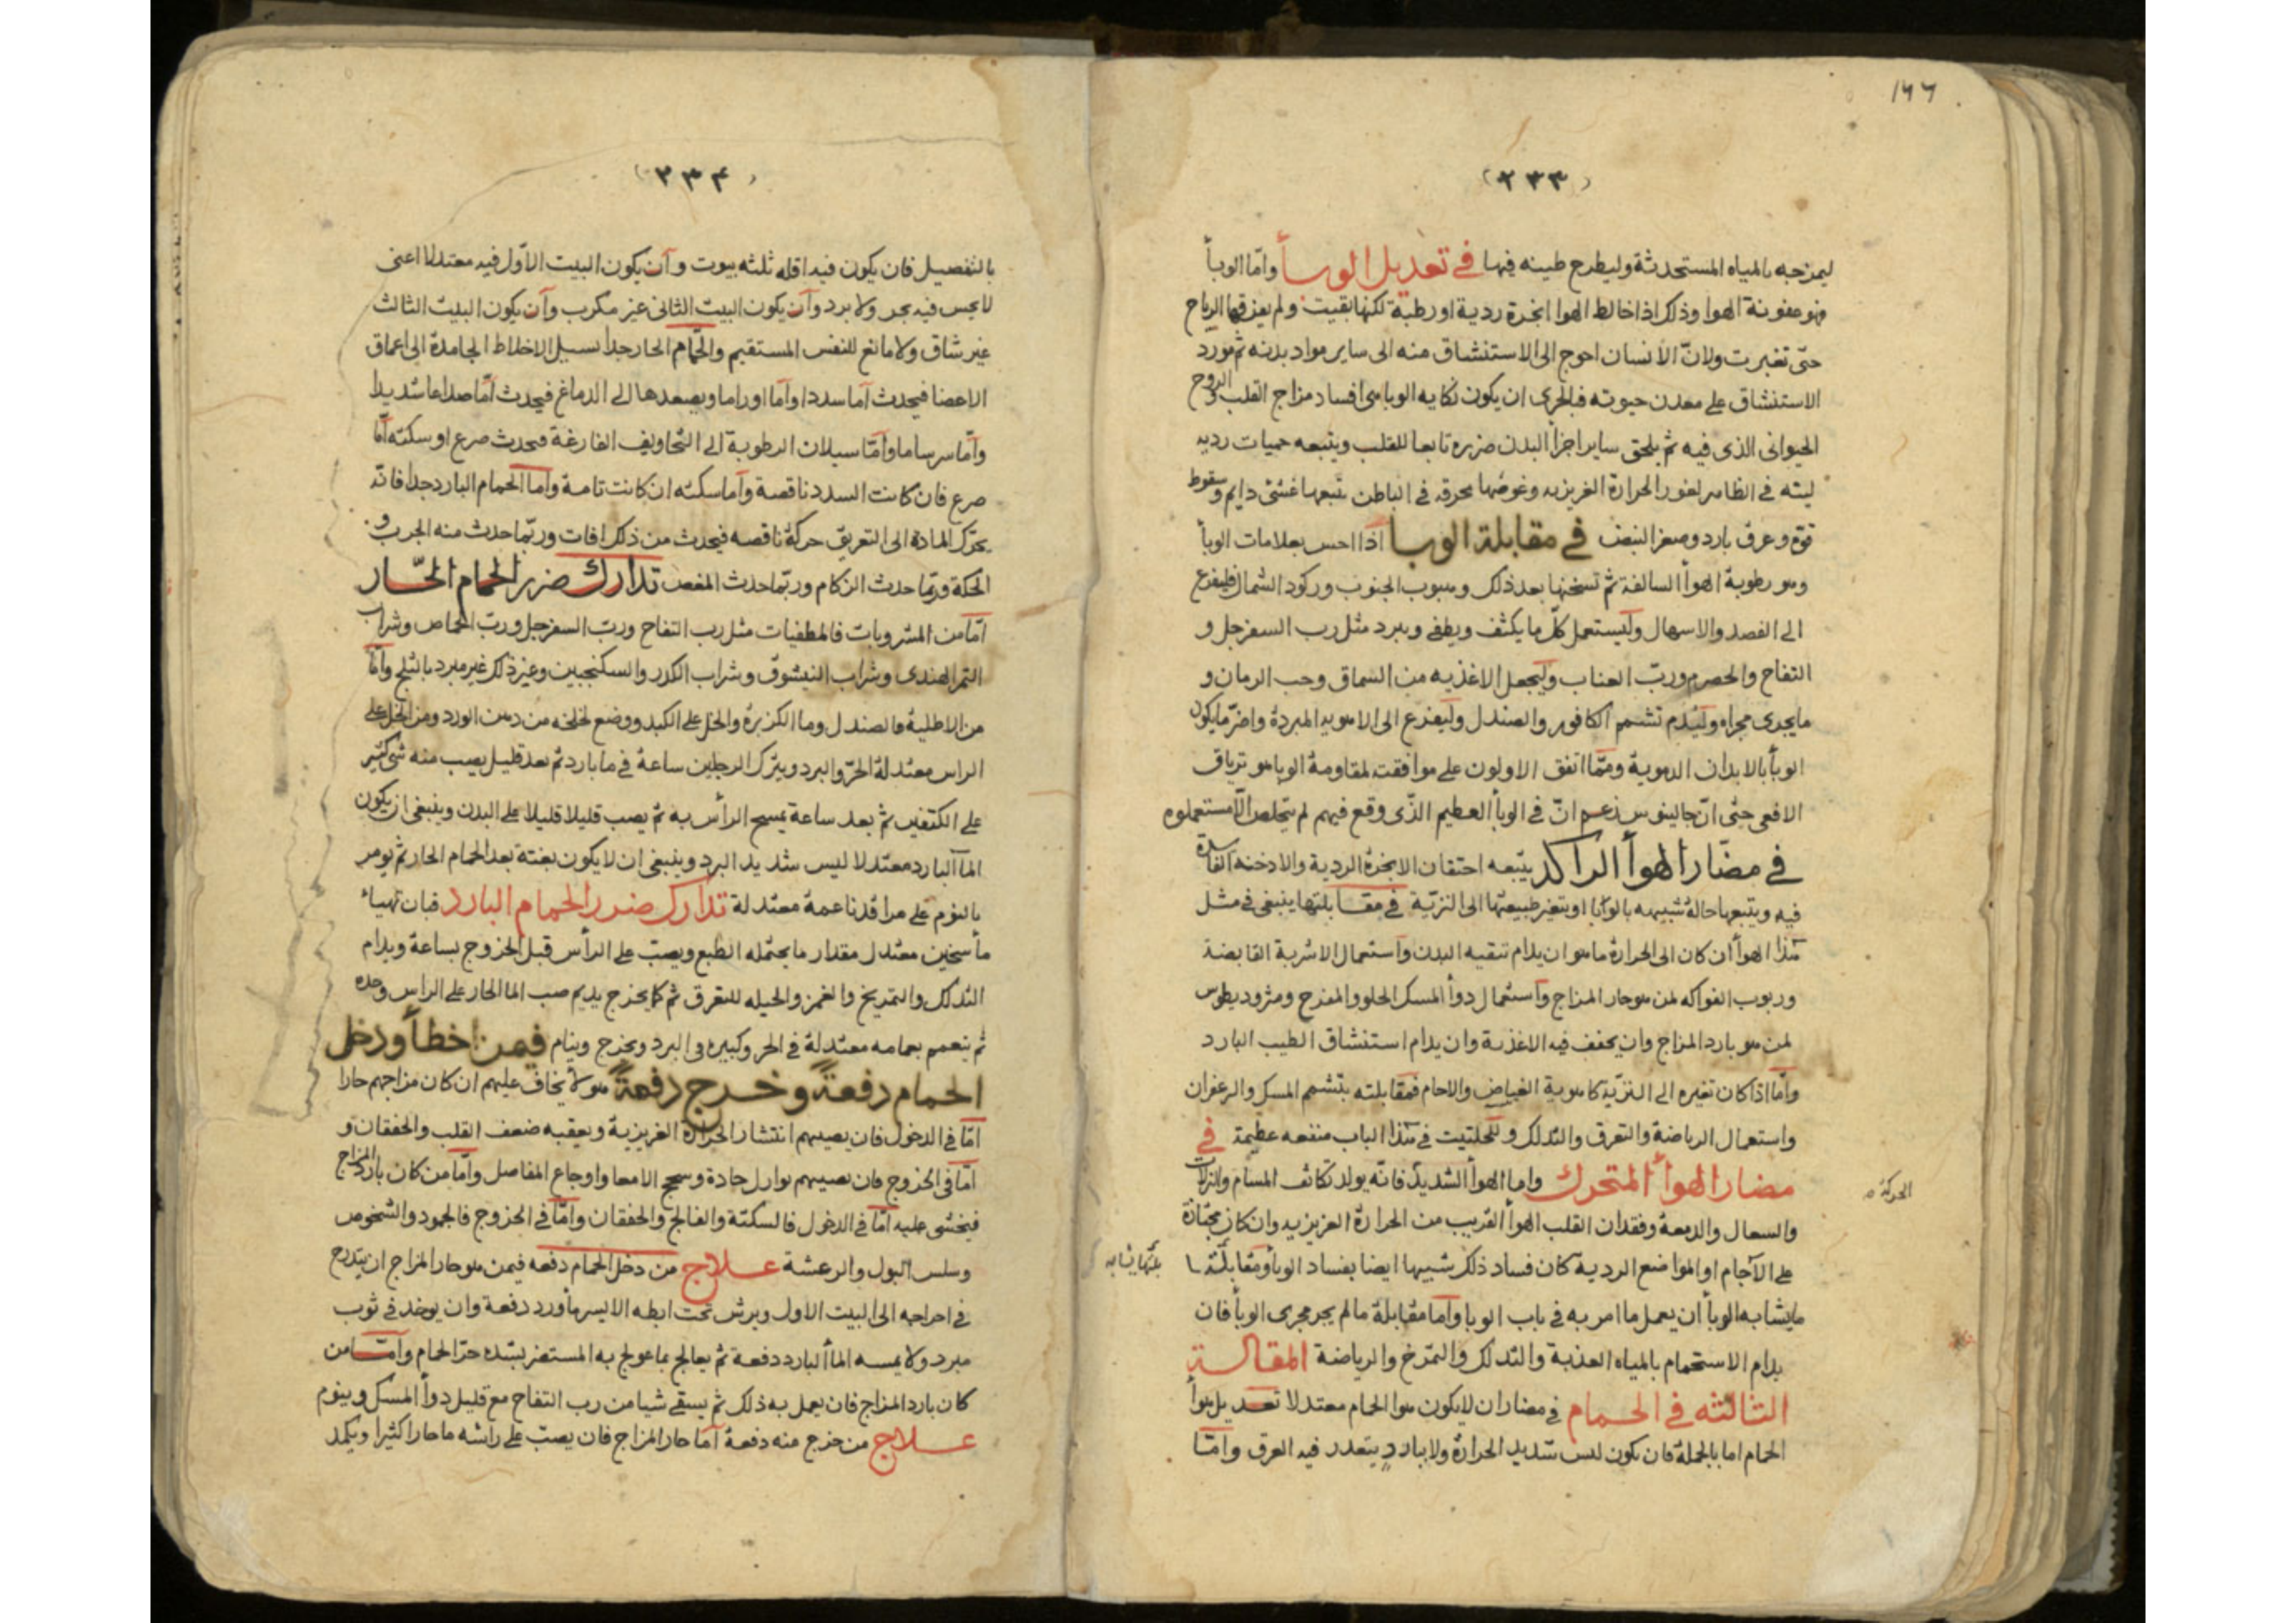 ١٦٦
(٢٣٣)
ليمزجه بالمياه المستحدثة وليطرح طينه فيها في تعديل الوبأ وامّا الوبأ
فهو عفونة الهوا وذلك اذا خالط الهوا ابخرة ردية او رطبة لكنها بقيت ولم يفرقها الرياح
حتّى تغيرت ولانّ الانسان احوج الى الاستنشاق منه الى ساير مواد بدنه ثم مورد
الاستنشاق على معدن حيوته فبالحرى ان يكون نكايه الوبا هى افساد مزاج القلب والروح
الحيوانى الذى فيه ثم يلحق ساير اجزأ البدن ضرره تابعا للقلب ويتبعه حميات رديه
لينه في الظاهر لغور الحرارة الغريزيه وغوصها محرقه في الباطن يتبعها غشى دايم وسقوط
قوة وعرق بارد وصغر النبض في مقابلة الوبا اذا احس بعلامات الوبأ
وهو رطوبة الهوأ السالفة ثم تسخنها بعد ذلك وهبوب الجنوب وركود الشمال فليفزع
الى الفصد والاسهال وليستعمل كلّ ما يكثف ويطفى ويبرد مثل رب السفرجل و
التفاح والحصرم وربّ العناب وليجعل الاغذيه من السماق وحب الرمان و
ما يجرى مجراه وليدم تشمم الكافور والصندل وليفزع الى الاهويه المبردة واضرّ مايكون
الوبأ بالابدان الدموية وممّا اتفق الاولون على موافقته لمقاومة الوبا هو ترياق
الافعى حتّى انّ جالينوس زعم انّ في الوبأ العظيم الذّى وقع فيهم لم يتخلص الّا مستعملوه
في مضّار الهوأ الراكد يتبعه احتقان الابخرة الردية والادخنه الفاسدة
فيه ويتبعها حالة شبيهه بالوبا او يتغير طبيعتها الى النزيّة في مقابلتها ينبغى في مثل
هذا الهوأ ان كان الى الحرارة ما هو ان يدام تنقيه البدن واستعمال الاشربة القابضة
وربوب الفواكه لمن هو حار المزاج واستعمال دوأ المسك الحلو والمفرح ومثروديطوس
لمن هو بارد المزاج وان يخفف فيه الاغذية وان يدام استنشاق الطيب البارد
وامّا اذا كان تغيره الى النزيّة كاهوية الغياض والاجام فمقابلته بتشمم المسك والزعفران
واستعمال الرياضة والتعرق والتدلك وللحلتيت في هذا الباب منفعه عظيمة في
مضار الهوأ المتحرك واما الهوأ الشديد فانّه يولد تكاثف المسام والنزلات
الحركة
والسعال والدمعة وفقدان القلب الهوأ القريب من الحرارة الغريزيه وان كان مجتازة
على الآجام او المواضع الردية كان فساد ذلك شبيها ايضا بفساد الوبأ ومقابلته
مايشابه الوبأ ان يعمل ما امر به في باب الوبا واما مقابلة مالم يجر مجرى الوبأ فان
يدام الاستحمام بالمياه العذبة والتدلك والتمرّخ والرياضة المقالة
الثالثه في الحمام في مضاران لايكون هوا الحمام معتدلا تعديل هوأ
الحمام اما بالجملة فان يكون ليس شديد الحرارة ولا بارد يتعذر فيه العرق وامّا
(٢٣٤)
بالتفصيل فان يكون فيه اقله ثلثه بيوت وآن يكون البيت الاوّل فيه معتدلا اعنى
لا يحس فيه بحر ولا برد وآن يكون البيت الثانى غير مكرب وآن يكون البيت الثالث
غير شاق ولا مانع للنفس المستقيم والحمّام الحار جدا يسيل الاخلاط الجامدة الى اعماق
الاعضا فيحدث آما سددا وآمّا اوراما ويصعدها الى الدماغ فيحدث آمّا صداعا شديدا
وآمّا سرساما وآمّا سيلان الرطوبة الى التجاويف الفارغة فيحدث صرع او سكته آمّا
صرع فان كانت السدد ناقصة وآما سكته ان كانت تامة واما الحمام البارد جدا فانّه
يحرّك المادة الى التعريق حركة ناقصه فيحدث من ذلك افات وربّما حدث منه الجرب و
الحكة وربّما حدث الزكام وربّما حدث المغص تدارك ضرر الحمام الحّار
امّا من المشروبات فالمطفيات مثل رب التفاح وربّ السفرجل وربّ الحماض وشراب
التمر الهندى وشراب النيشوق وشراب الكدر والسكنجبين وغير ذلك غير مبرد بالثلج وآمّا
من الاطلية فالصندل وما الكزبرة والخل على الكبد ووضع لخلخه من دهن الورد ومن الخل على
الراس معتدلة الحرّ والبرد ويترك الرجلين ساعة في ما بارد ثم بعد قليل يصب منه شى كثير
على الكتفين ثم بعد ساعة يمسح الرأس به ثم يصب قليلا قليلا على البدن وينبغى ان يكون
المآ البارد معتدلا ليس شديد البرد وينبغى ان لايكون بغتة بعد الحمام الحار ثم يومر
بالنوم على مراقد ناعمة معتدلة تدارك ضرر الحمام البارد فبان تهياء
مأ سخين معتدل مقدار ما يحتمله الطبع ويصبّ على الرأس قبل الخروج بساعة ويدام
التدلك والتمريخ والغمز والحيله للتعرق ثم كما يخرج يديم صب الما الحار على الراس وحده
ثم يتعمم بعمامه معتدلة في الحر وكبيره في البرد ويخرج وينام فيمن اخطأ ودخل
الحمام دفعةً وخرج دفعةً هولأ يخاف عليهم ان كان مزاجهم حارا
امّا في الدخول فان يصيبهم انتشار الحرارة الغريزية ويعقبه ضعف القلب والخفقان و
امّا فى الخروج فان يصيبهم نوازل حادة وسحج الامعا واوجاع المفاصل وآمّا من كان بارد المزاج
فيخشى عليه آمّا في الدخول فالسكتة والفالج والخفقان وامّا في الخروج فالجمود والشخوص
وسلس البول والرعشة علاج من دخل الحمام دفعه فيمن هو حار المزاج ان يتدرج
في اخراجه الى البيت الاول ويرش تحت ابطه الايسر مأ ورد دفعة وان يوخذ في ثوب
مبرد ولا يمسه المأ البارد دفعة ثم يعالج بما عولج به المستضر بشده حرّ الحمام وآمّا من
كان بارد المزاج فان يعمل به ذلك ثم يسقى شيا من رب التفاح مع قليل دوأ المسك وينوم
علاج من خرج منه دفعة آمّا حار المزاج فان يصبّ على رآسه ما حارا كثيرا ويكمد